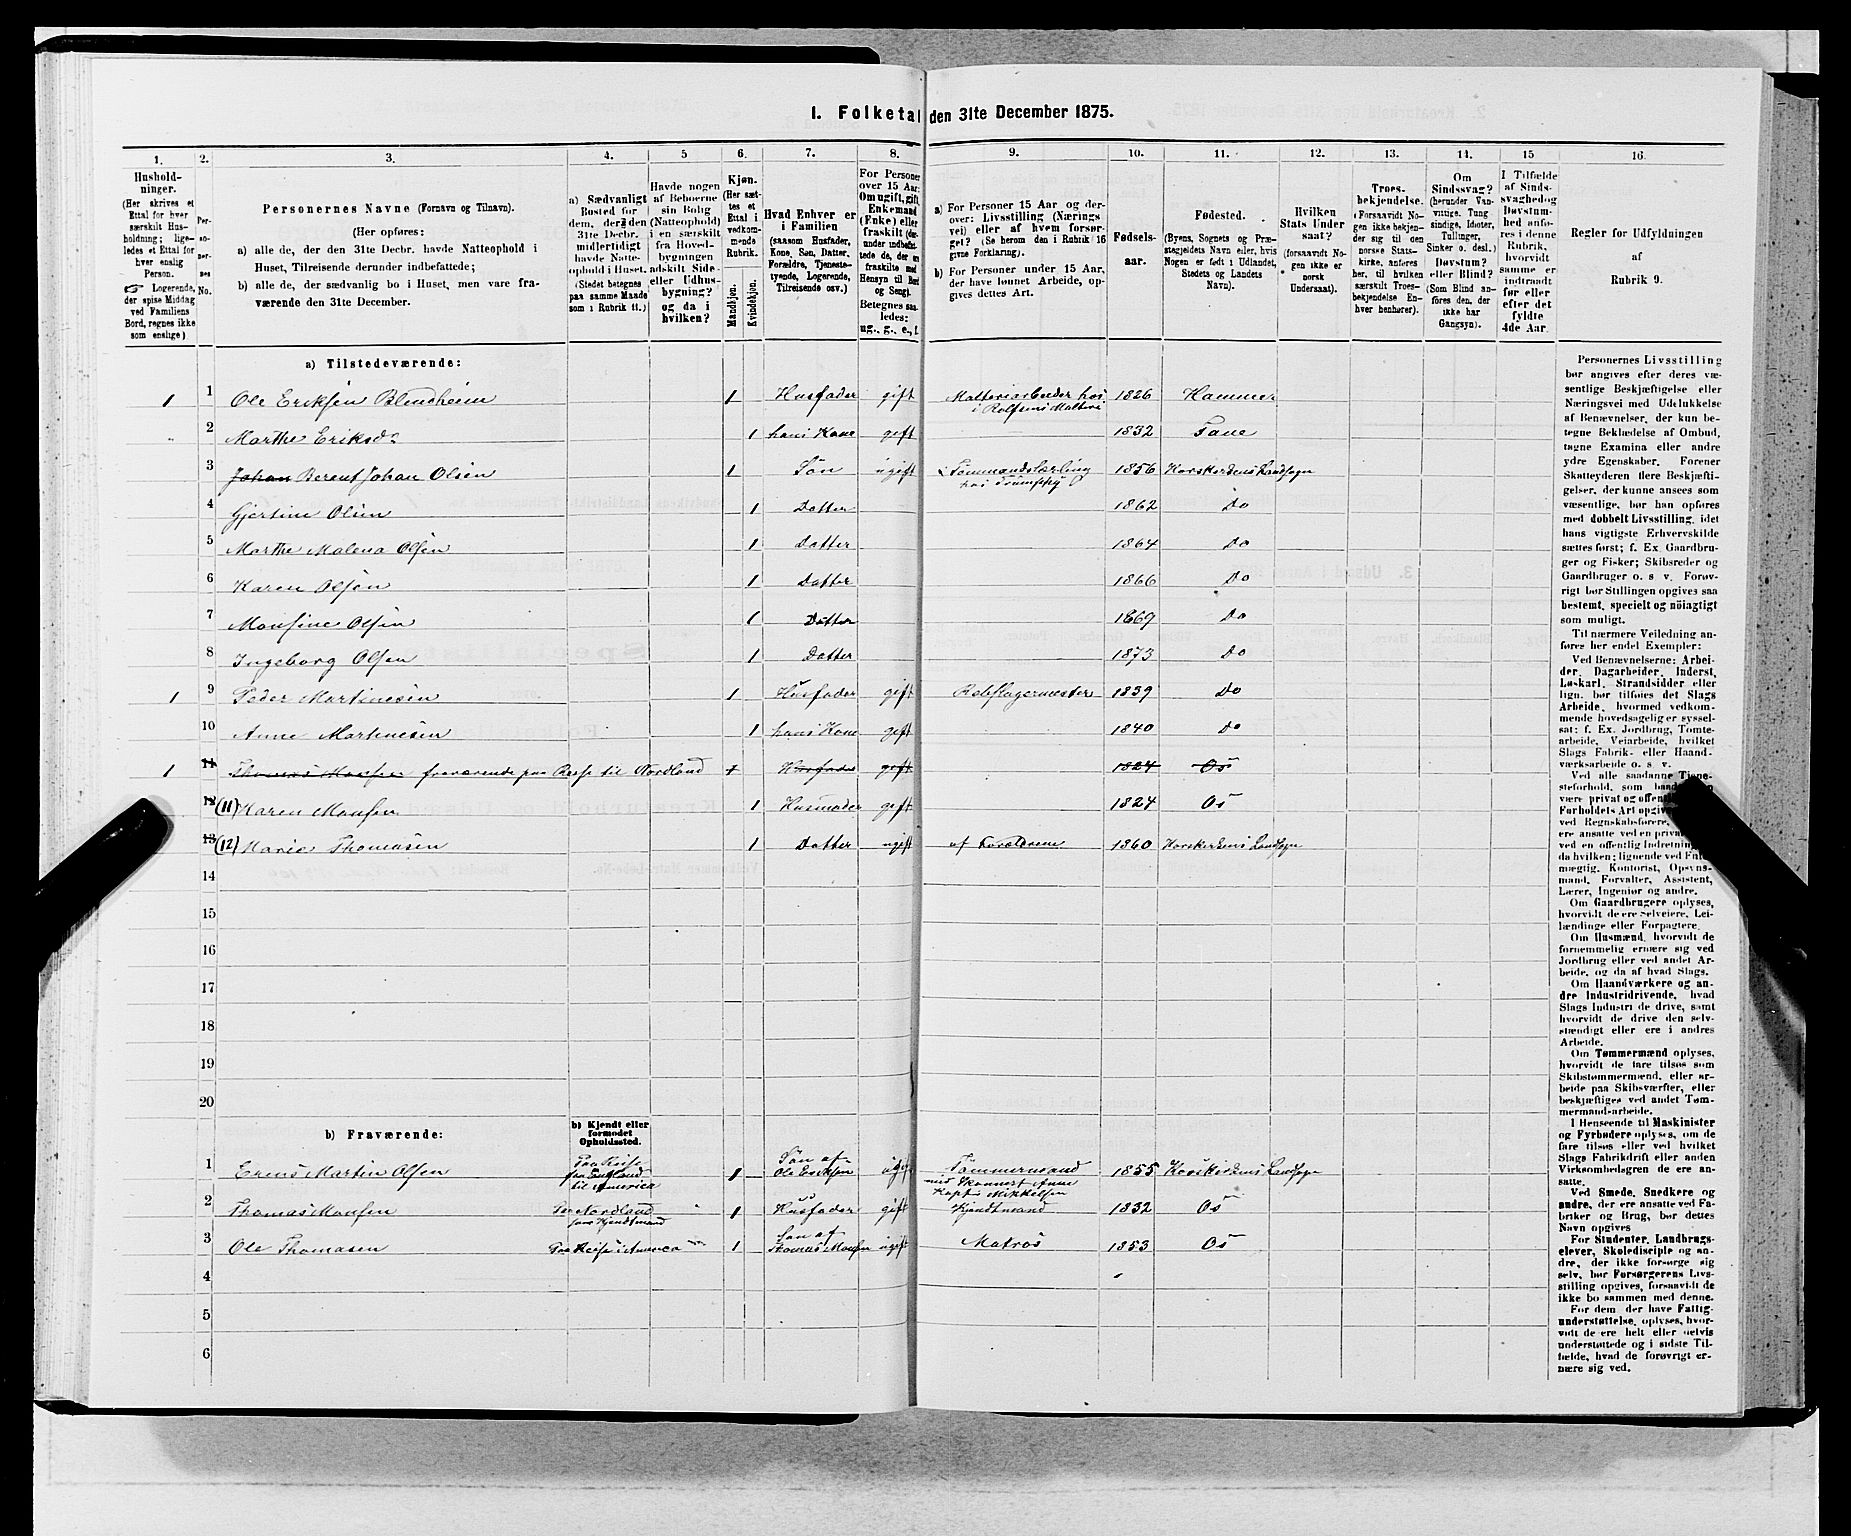 1. Folketal den 31te December 1875.
1. 2. 3. 4. 5 6. 7. 8. 9. 10. 11. 12. 13. 14. 15 16.
Hushold-
ninger.
(Her skrives et
Ettal for hver
særskilt Hus-
holdning; lige-
ledes et Ettal for
hver enslig
Person.
☞ Logerende,
der spise Middag
ved Familiens
Bord, regnes ikke
som enslige.)
Per-
so-
ner-
nes
No.
Personernes Navne (Fornavn og Tilnavn).
(Her opføres:
a) alle de, der den 31te Decbr. havde Natteophold i
Huset, Tilreisende derunder indbefattede;
b) alle de, der sædvanlig bo i Huset, men vare fra-
værende den 31te December.
a) Sædvanligt
Bosted for
dem, der den
31te Decbr.
midlertidigt
havde Natte-
ophold i Huset.
(Stedet betegnes
paa samme Maade
som i Rubrik 11.)
Havde nogen
af Beboerne
sin Bolig
(Natteophold)
i en særskilt
fra Hoved-
bygningen
adskilt Side-
eller Udhus-
bygning?
og da i
hvilken?
Kjøn.
(Her sæt-
tes et
Ettal i
vedkom-
mende
Rubrik.
Mandkjøn.
Kvindekjøn.
Hvad Enhver er
i Familien
(saasom Husfader,
Kone, Søn, Datter,
Forældre, Tjeneste-
tyende, Logerende,
Tilreisende osv.)
For Personer
over 15 Aar:
Om ugift, gift,
Enkemand
(Enke) eller
fraskilt (der-
under indbefat-
tede de, der ere
fraskilte med
Hensyn til Bord
og Seng).
Betegnes saa-
ledes:
ug., g., e., f.
a) For Personer 15 Aar og der-
over: Livsstilling (Nærings
vei) eller af hvem forsør-
get? (Se herom den i Rubrik 16
givne Forklaring).
b) For Personer under 15 Aar,
der have lønnet Arbeide, op-
gives dettes Art.
Fødsels-
aar.
Fødested.
(Byens, Sognets og Præ-
stegjeldets Navn eller, hvis
Nogen er født i Udlandet,
Stedets og Landets
Navn).
Hvilken
Stats Under
saat?
(forsaavidt No-
gen ikke er
norsk
Undersaat).
Troes-
bekjendelse.
(Forsaavidt No-
gen ikke bekjen-
der sig til den
norske Stats-
kirke, anføres
her, til hvilken
særskilt Troes-
bekjendelse En-
hver henhører).
Om
Sindssvag?
(herunder Van-
vittige, Tung
sindige, Idioter,
Tullinger,
Sinker o. desl.)
Døvstum?
eller Blind?
(Som Blind an-
føres den, der
ikke har
Gangsyn).
I Tilfælde
af Sinds-
svaghed og
Døvstum-
hed anfø-
res i denne
Rubrik,
hvorvidt
samme er
indtraadt
før eller
efter det
fyldte
4de Aar.
Regler for Udfyldningen
af
Rubrik 9.
a) Tilstedeværende:
1 1 Ole Eriksen Blindheim 1 Husfader gift Malteriarbeider hos 1826 Hammer
i Rolfsens Malteri
2 Marthe Eriksd. 1 hans Kone gift 1832 Fane
3 Johan Berent Johan Olsen 1 Søn ugift Tømmandslærling 1856 Korskirkens Landsogn
hos Trumphy
4 Gjertine Olsen 1 Datter 1862 Do
5 Marthe Malena Olsen 1 Datter 1864 Do
6 Karen Olsen 1 Datter 1866 Do
7 Monsine Olsen 1 Datter 1869 Do
8 Ingeborg Olsen 1 Datter 1873 Do
1 9 Peder Martinesen 1 Husfader gift Rebslagermester 1839 Do
10 Anne Martinesen 1 hans Kone gift 1840 Do
1 11 Thomas Monsen fraværende paa Reise til Nordland 1 Husfader gift 1824 Os
12 (11) Karen Monsen 1 Husmoder gift 1824 Os
13 (12) Marie Thomasen 1 Datter ugift af Forældrene 1860 Korskirkens Landsogn
14
15
16
17
18
19
20
b) Fraværende:
b) Kjendt eller
formodet
Opholdssted.
1 Erens Martin Olsen Paa Reise fra England til America 1 Søn af Ole Eriksen ugift Tømmermand med Skonnert Anne Kapt. Mikkelsen 1855 Korskirkens Landsogn
2 Thomas Monsen Paa Nordland som Kjendtmand 1 Husfader gift Kjendtmand 1832 Os
3 Ole Thomasen Paa Reise i America 1 Søn af Thomas Monsen ugift Matros 1853 Os
4
5
6
Personernes Livsstilling
bør angives efter deres væ-
sentlige Beskjæftigelse eller
Næringsvei med Udelukkelse
af Benævnelser, der kun be-
tegne Beklædelse af Ombud,
tagne Examina eller andre
ydre Egenskaber. Forener
Skatteyderen flere Beskjæfti-
gelser, der kunne ansees som
væsentlige, bør han opføres
med dobbelt Livsstilling, idet
hans vigtigste Erhvervskilde
sættes først; f. Ex. Gaardbru-
ger og Fisker; Skibsreder og
Gaardbruger o. s. v. Forøv-
rigt bør Stillingen opgives saa
bestemt, specielt og nöiagtigt
som muligt.
Til nærmere Veiledning an-
føres her endel Exempler:
Ved Benævnelserne: Arbei-
der, Dagarbeider, Inderst,
Løskarl, Strandsidder eller
lign. bør tilføies det Slags
Arbeide, hvormed vedkom-
mende hovedsagelig er syssel-
sat: f. Ex. Jordbrug, Tomte-
arbeide, Veiarbeide, hvilket
Slags Fabrik- eller Haand-
værksarbeide o. s. v.
Ved alle saadanne Tjene-
steforhold, som baade
være privat og offentlig
Forholdets Art opgives
ved Regnskabsførere,
ere ansatte ved en privat
ved en offentlig Indretning
da hvilken; lignende ved Fuld-
mægtig, Kontorist, Opsyns-
mand, Forvalter, Assistent,
Lærer, Ingeniør og andre.
Om Gaardbrugere oplyses,
hvorvidt de ere Selveiere, Lei-
lændinge eller Forpagtere.
Om Husmænd, hvorvidt de
fornemmelig ernære sig ved
Jordbrug eller ved andet Ar-
beide, og da af hvad Slags.
Om Haandværkere og an-
dre Industridrivende, hvad
Slags Industri de drive, samt
hvorvidt de drive den selv-
stændigt eller ere i andres
Arbeide.
Om Tømmermænd oplyses,
hvorvidt de fare tilsøs som
Skibstømmermænd, eller ar-
beide paa Skibsværfter, eller
beskjæftiges ved andet Tøm-
mermandsarbeide.
I Henseende til Maskinister
og Fyrbødere oplyses, om de
fare tilsøs eller ved hvilket
Slags Fabrikdrift eller anden
Virksomhedsgren de ere an-
satte.
Ved Smede, Snedkere og
andre, der ere ansatte ved Fa-
briker og Brug, bør dettes
Navn opgives
For Studenter, Landbrugs-
elever, Skoledisciple og an-
dre, der ikke forsørge sig
selv, bør Forsørgerens Livs-
stilling opgives, forsaavidt de
ikke bo sammen med denne.
For dem, der have Fattig-
understøttelse, oplyses, hvor-
vidt de ere helt eller delvis
understøttede og i sidste Til-
fælde, hvad de forøvrigt er-
nære sig ved.